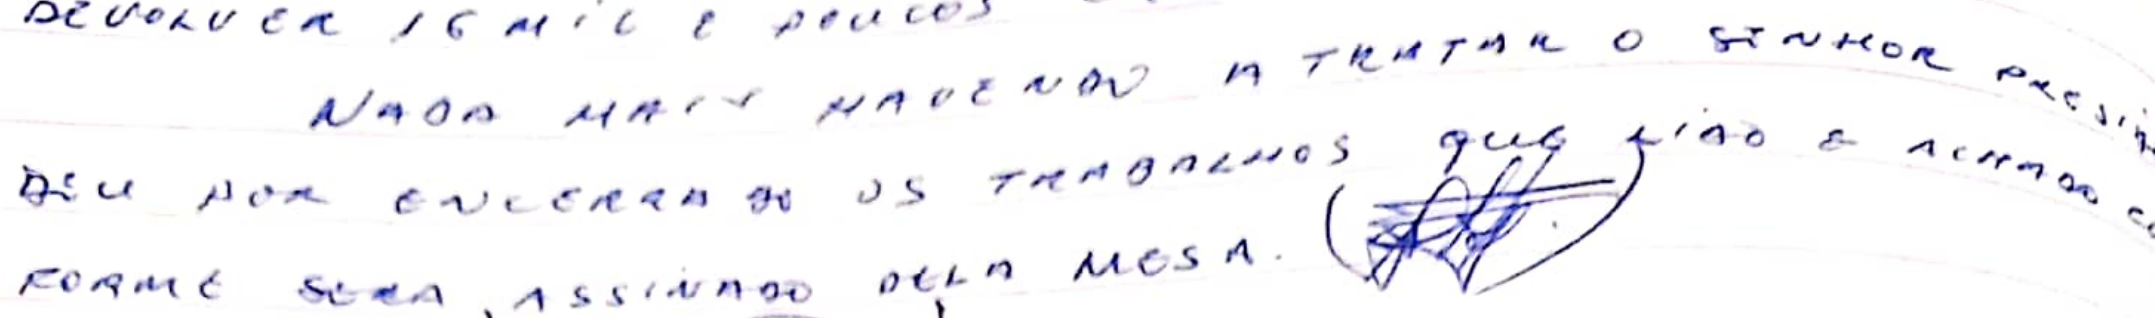 DEVOLVER 16 MIL E POUCOS
NADA MAIS HAVENDO A TRATAR O SENHOR PRESID
DEU POR ENCERRADO OS TRABALHOS QUE LIDO E ACHADO CO
FORME SERA, ASSINADO PELA MESA.